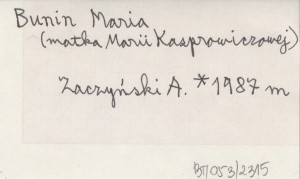 Bunin Maria
(matka Marii Kasprowiczowej)
Zaczyński A. * 1987 m
BП053/2315